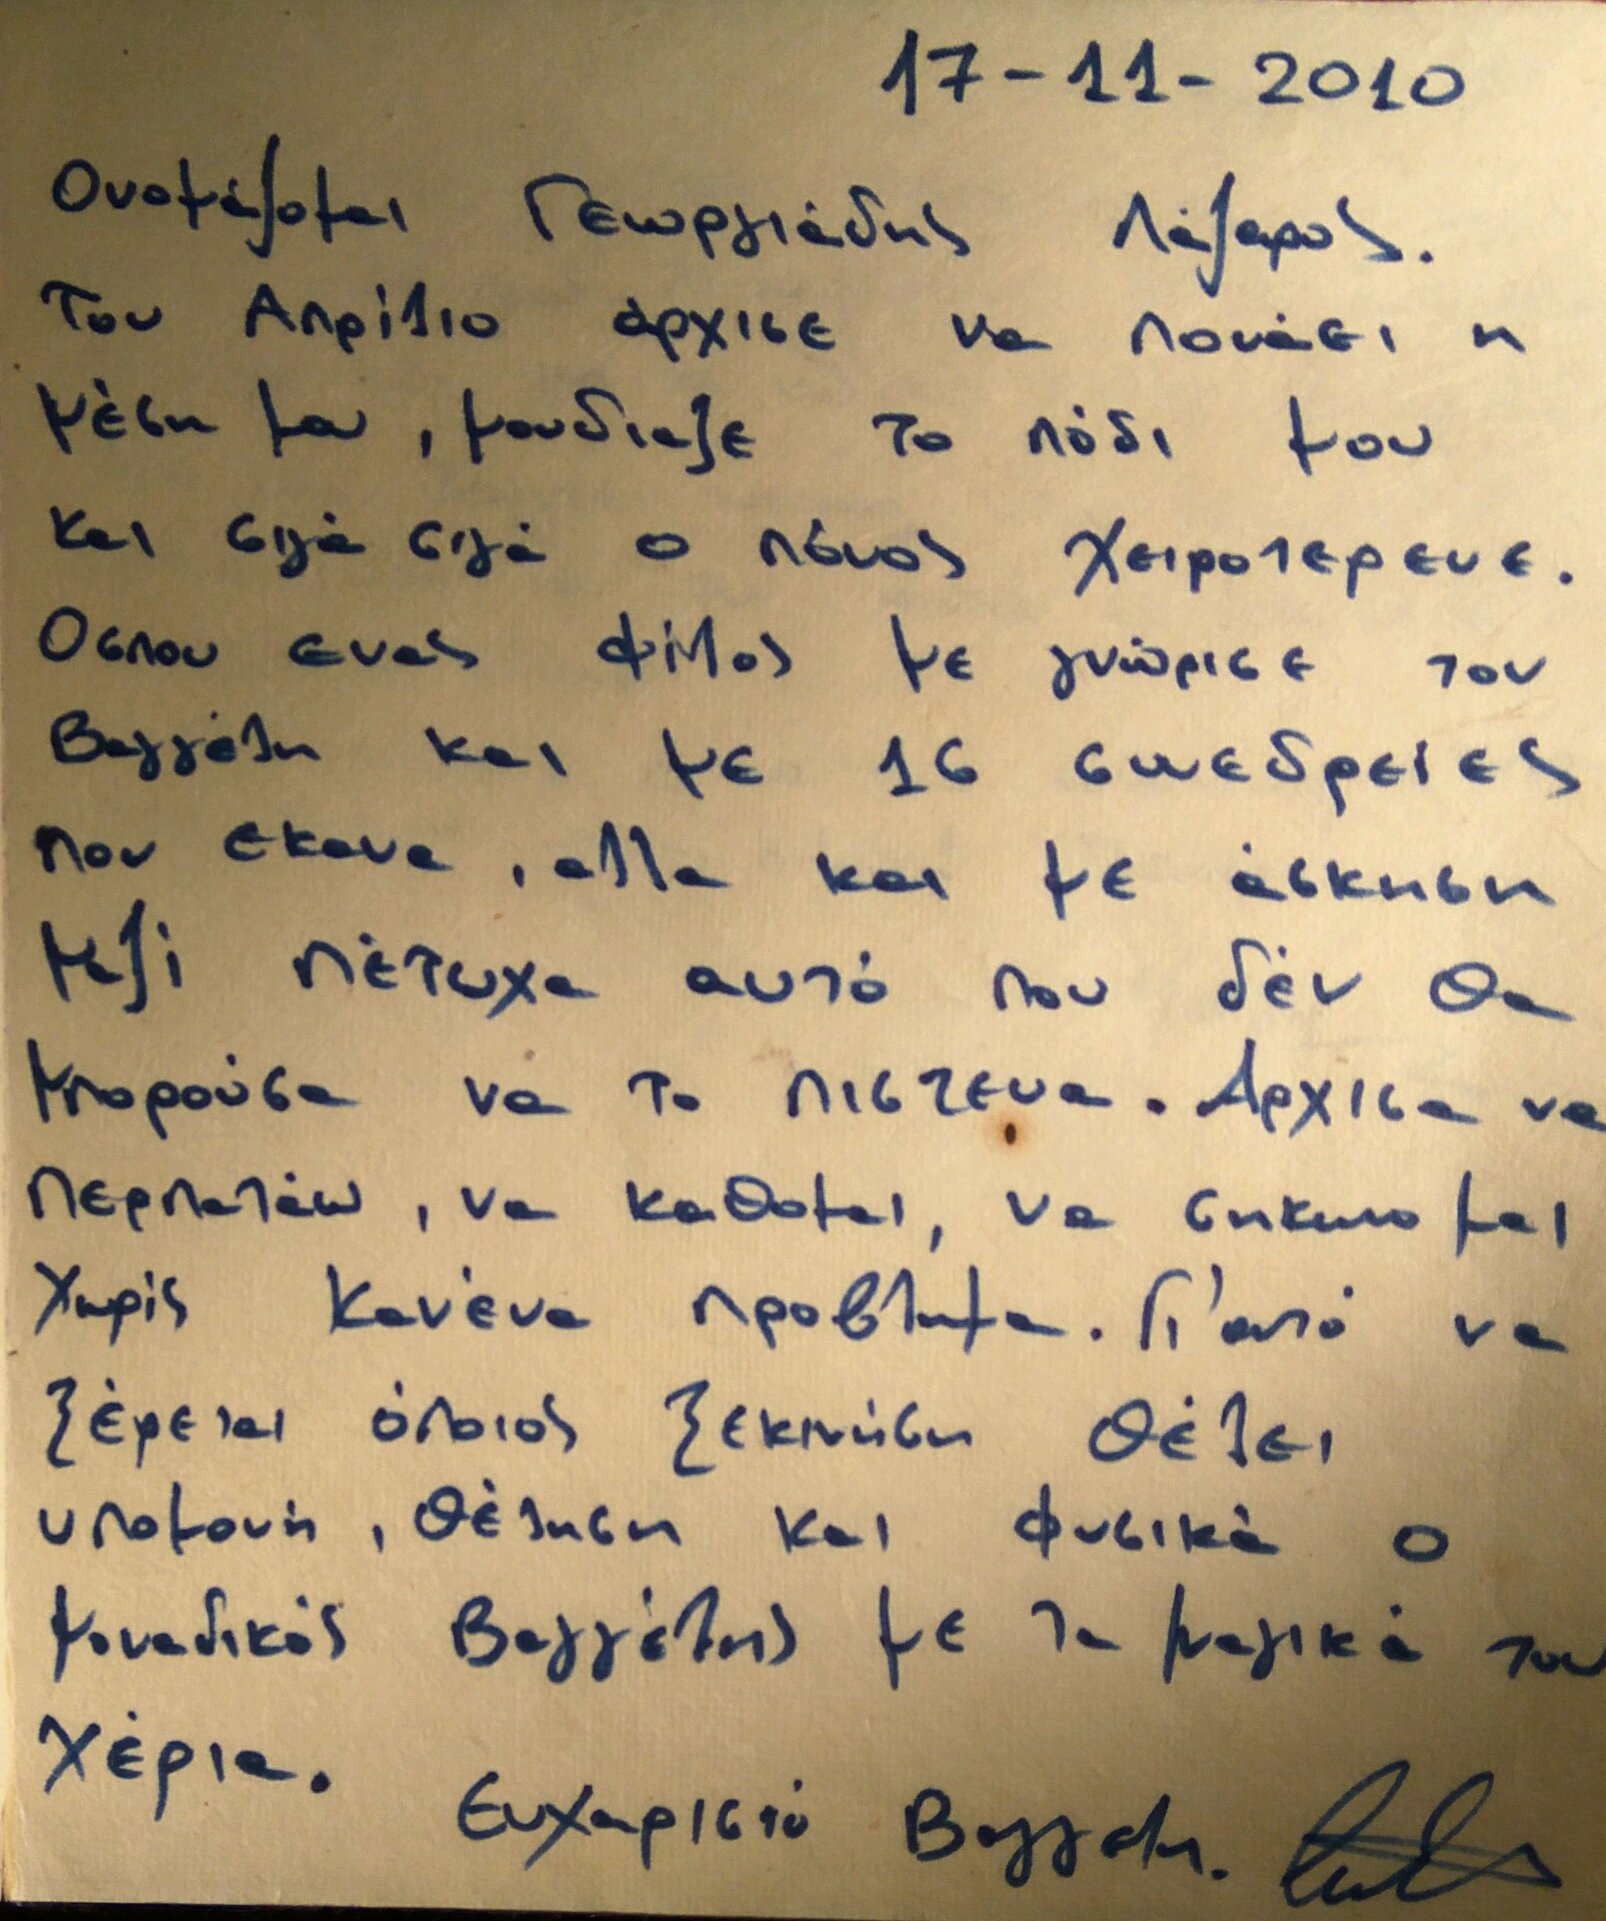 17-11-2010
Ονομάζομαι Γεωργιάδης Λάζαρος.
Τον Απρίλιο άρχισε να πονάει η
μέση μου, μουδιαζε το πόδι μου
και σιγά σιγά ο πόνος χειροτερευε.
Οσπου ενας φίλος με γνώρισε τον
Βαγγέλη και με 16 συνεδρείες
που εκανα, αλλα και με άσκηση
μαζί πέτυχα αυτό που δέν θα
μπορούσα να το πιστευα. Αρχισα να
περπατάω, να καθομαι, να σηκωνομαι
χωρίς κανένα προβλημα. Γι'αυτό να
ξέρεται όποιος ξεκινήση θέλει
υπομονή, θέληση και φυσικά ο
μοναδικός Βαγγέλης με τα μαγικά του
χέρια.
Ευχαριστώ Βαγγελη.